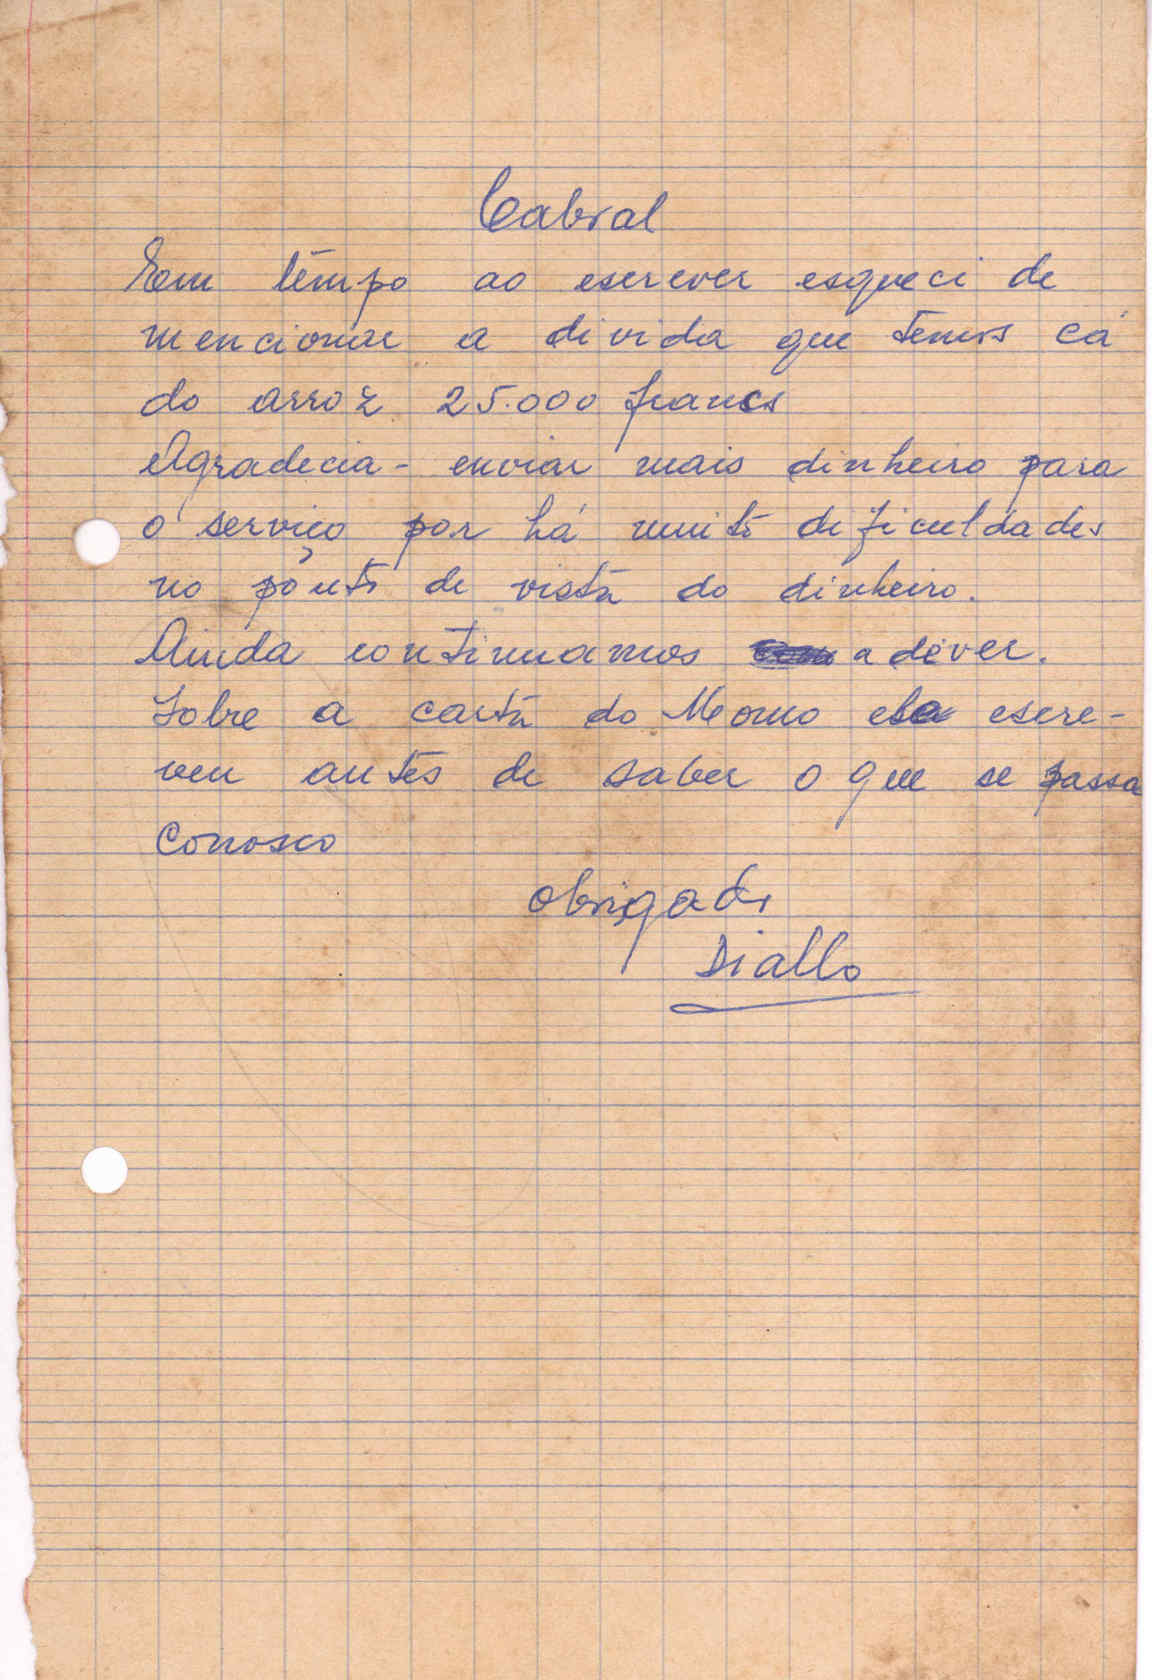 Cabral
Em tempo ao escrever esqueci de
mencionar a divida que temos cá
do arroz 25.000 francs
Agradecia - enviar mais dinheiro para
o serviço por há muito dificuldades
no ponto de vista do dinheiro.
Ainda continuamos a dever.
Sobre a carta do Momo ela escre-
veu antes de saber o que se passa
conosco
Obrigado
Diallo